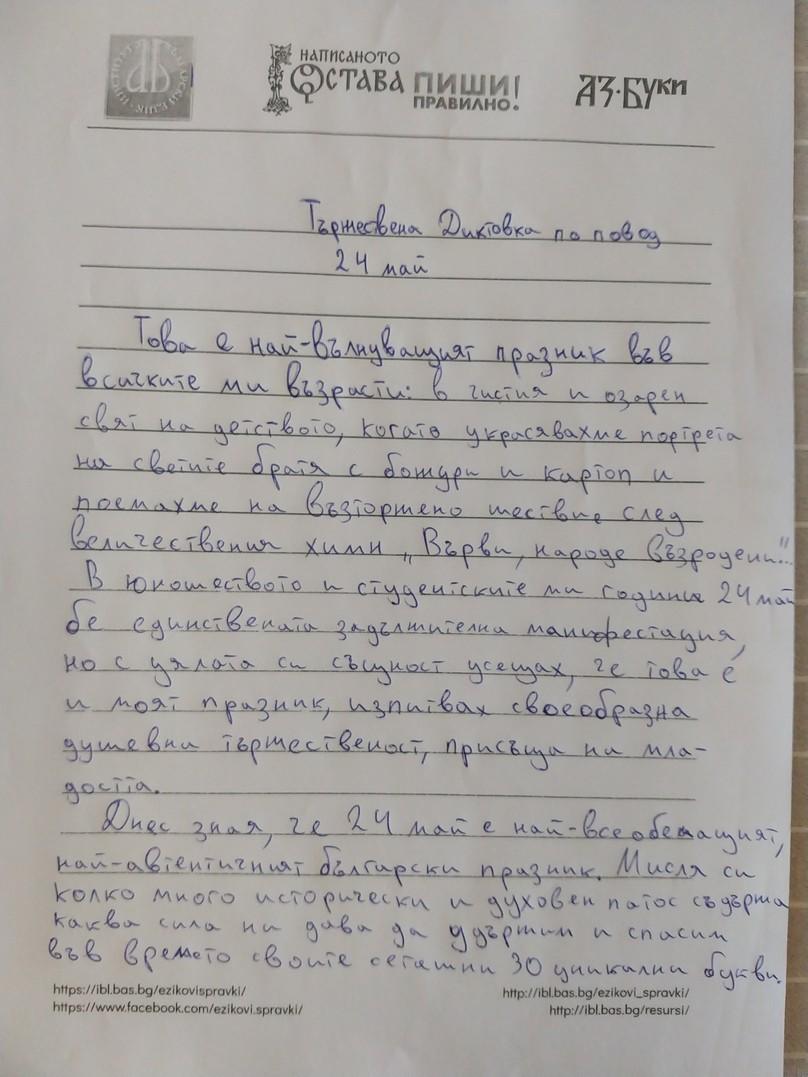 НАПИСАНОТО
ОСТАВА ПИШИ!
ПРАВИЛНО!
АЗ·БУКИ
Тържествена Диктовка по повод
24 май
Това е най-вълнуващият празник във
всичките ми възрасти: в чистия и озарен
свят на детството, когато украсявахме портрета
на светите братя с божури и картоп и
поемахме на възторжено шествие след
величествения химн „Върви, народе възродени"...
В юношеството и студентските ми години 24 май
бе единствената задължителна манифестация,
но с цялата си същност усещах, че това е
и моят празник, изпитвах своеобразна
душевна тържественост, присъща на мла-
достта.
Днес зная, че 24 май е най-всеобемащият,
най-автентичният български празник. Мисля си
колко много исторически и духовен патос съдържа
каква сила ни дава да удържим и спасим
във времето своите сегашни 30 уникални букви.
https://ibl.bas.bg/ezikovispravki/
http://ibl.bas.bg/ezikovi_spravki/
https://www.facebook.com/ezikovi.spravki/
http://ibl.bas.bg/resursi/